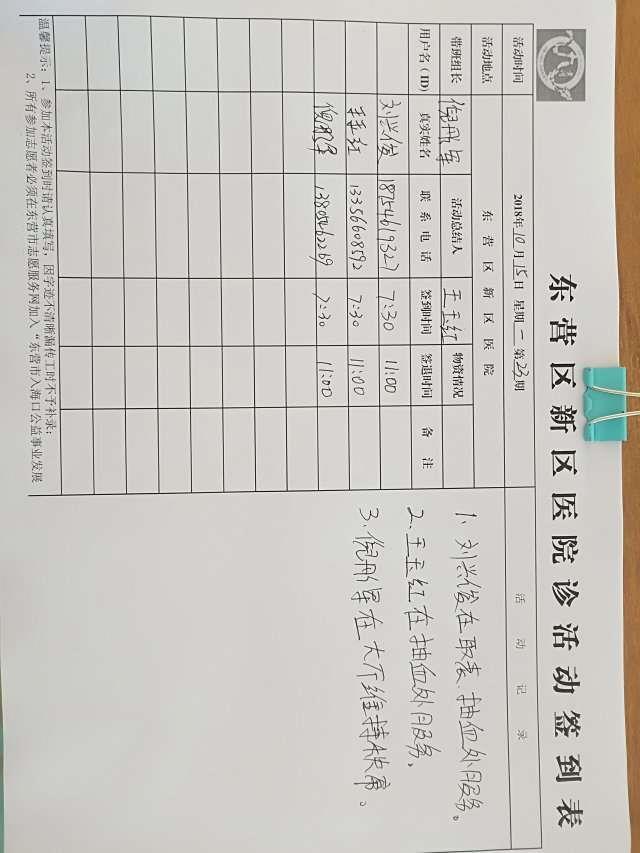 东营区新区医院诊活动签到表
活动时间 2018年10月15日 星期一 第23期 活动记录
活动地点 东营区新区医院
带班组长 倪丹军 活动总结人 王玉红 物资情况
用户名(ID) 真实姓名 联系电话 签到时间 签退时间 备注
刘兴俊 18754619327 7:30 11:00
王玉红 13356608592 7:30 11:00
倪丹军 13805462269 7:30 11:00
1、刘兴俊在取表、抽血处服务。
2、王玉红在抽血处服务。
3、倪丹军在大厅维持秩序。
温馨提示:1、参加本活动签到时请认真填写,因字迹不清晰漏传工时不予补录;
2、所有参加志愿者必须在东营市志愿服务网加入“东营市入海口公益事业发展